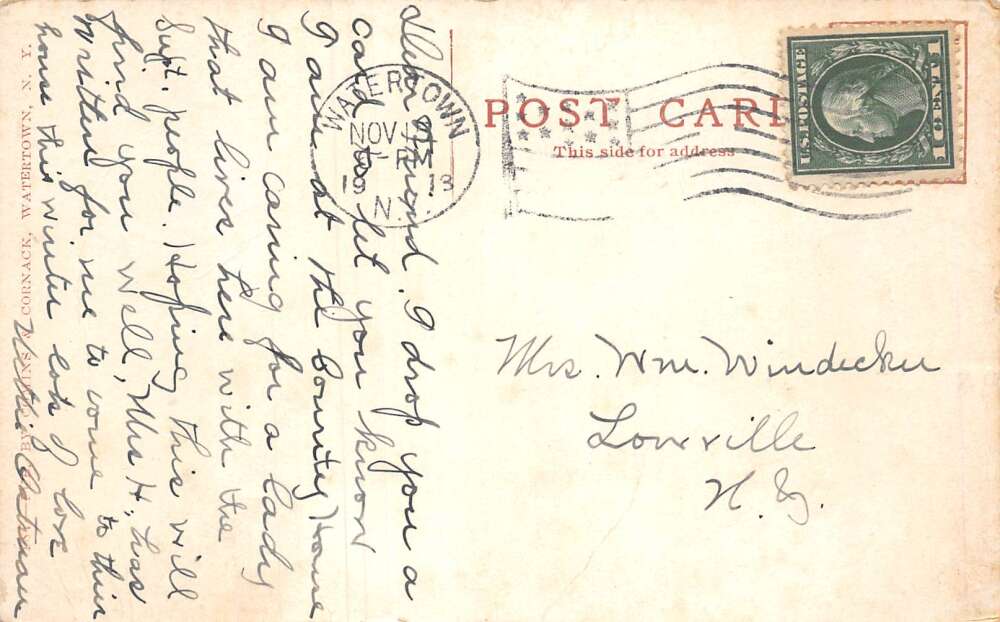 POST CARD
This side for address
WATERTOWN
NOV 12
1913
N.Y.
U.S. POSTAGE
1 CENT 1
Dear Friend. I drop you a
card to let you know
I am at the County Home
I am caring for a lady
that lives here with the
Supt. people. Hoping this will
find you well, Mrs H. has
written for me to come to their
house this winter lots of love
Nettie
Mrs. Wm. Windecker
Lowville
N. Y.
CORNACK, WATERTOWN, N. Y.